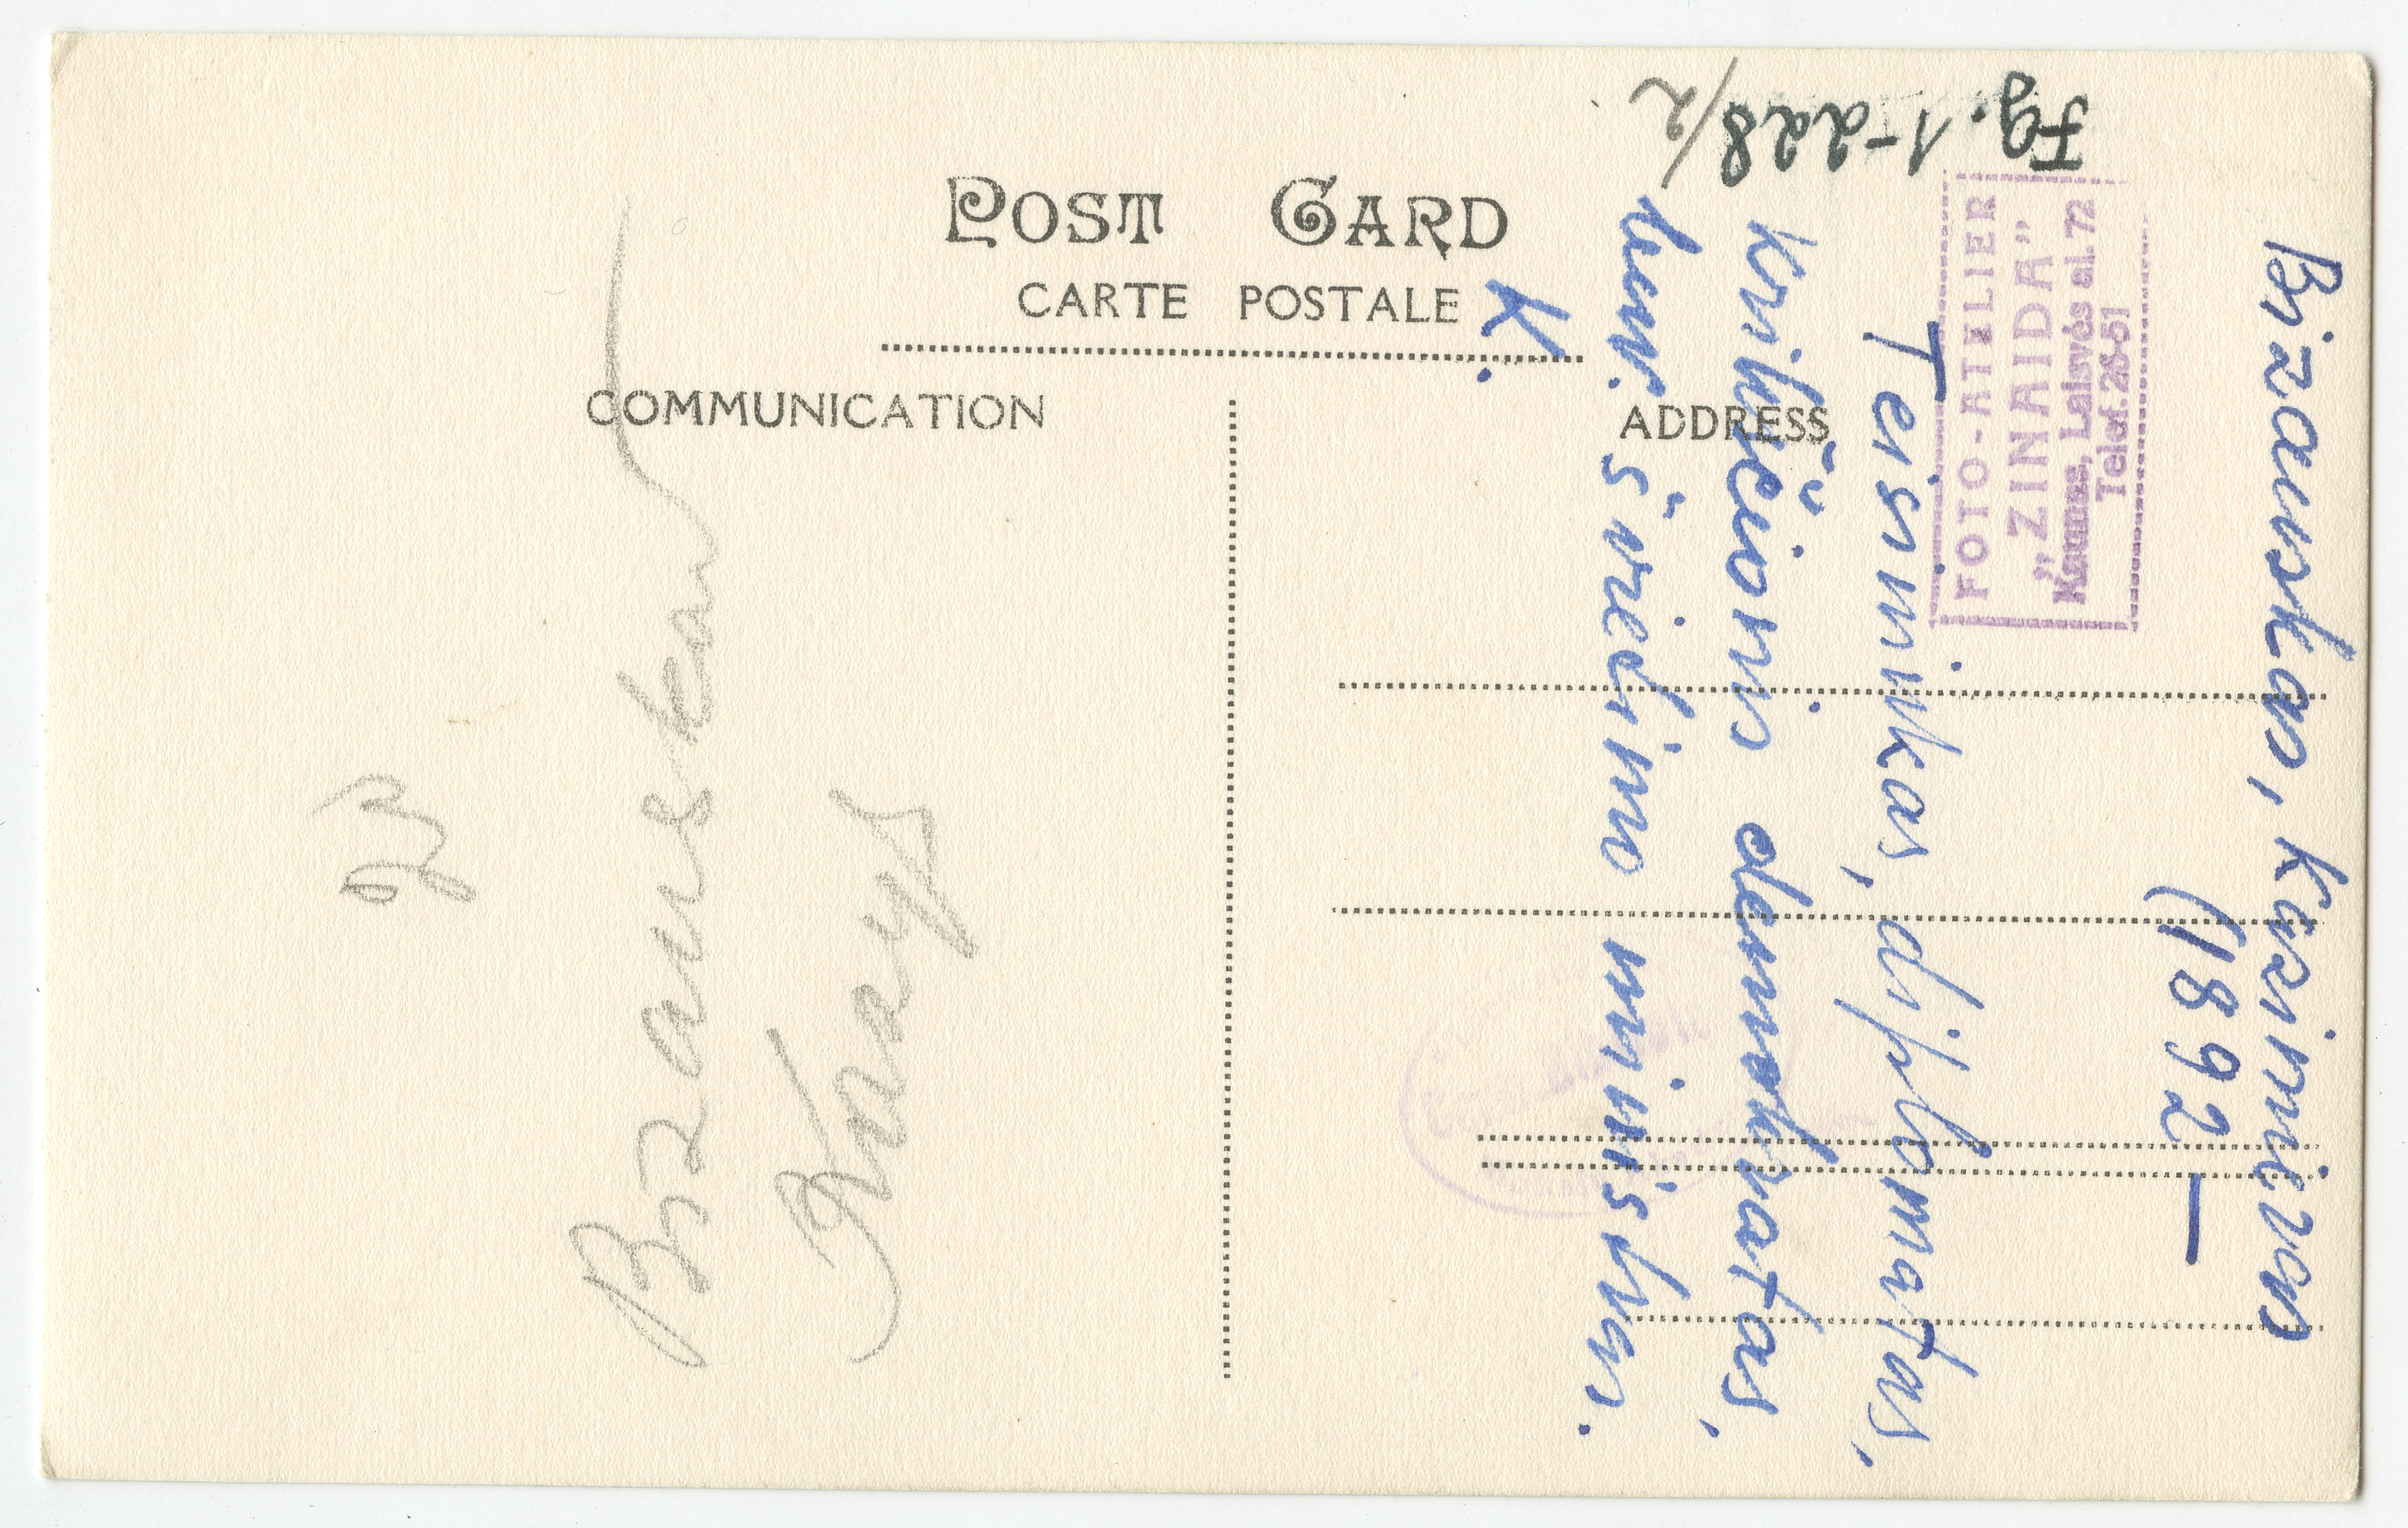 POST CARD
CARTE POSTALE
COMMUNICATION
ADDRESS
Fg. 1-228/2
FOTO-ATELIER
„ZINAIDA”
Kaunas, Laisvės al. 72
Telef. 26-51
Bizauskas, Kazimieras
(1892 —
Teisininkas, diplomatas,
krikščionis demokratas,
buv. švietimo ministras.
K.
Bizauskas
Kazys